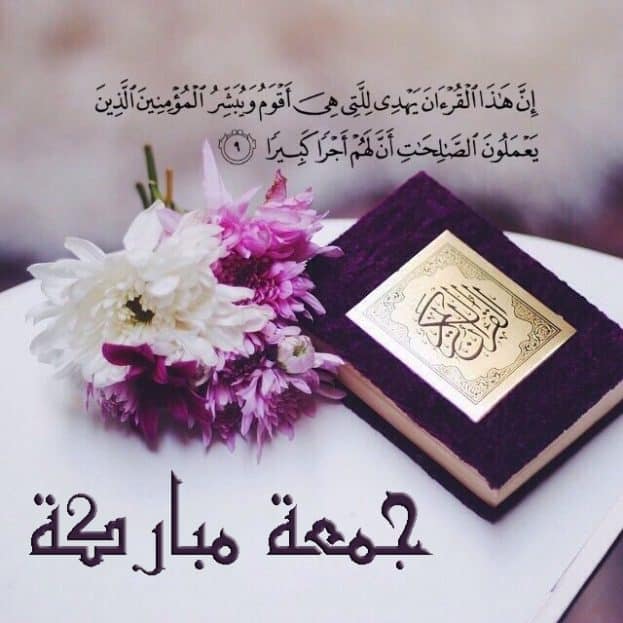 إِنَّ هَٰذَا ٱلْقُرْءَانَ يَهْدِى لِلَّتِى هِىَ أَقْوَمُ وَيُبَشِّرُ ٱلْمُؤْمِنِينَ ٱلَّذِينَ
يَعْمَلُونَ ٱلصَّٰلِحَٰتِ أَنَّ لَهُمْ أَجْرًا كَبِيرًا ٩
القرآن الكريم
جمعة مباركة